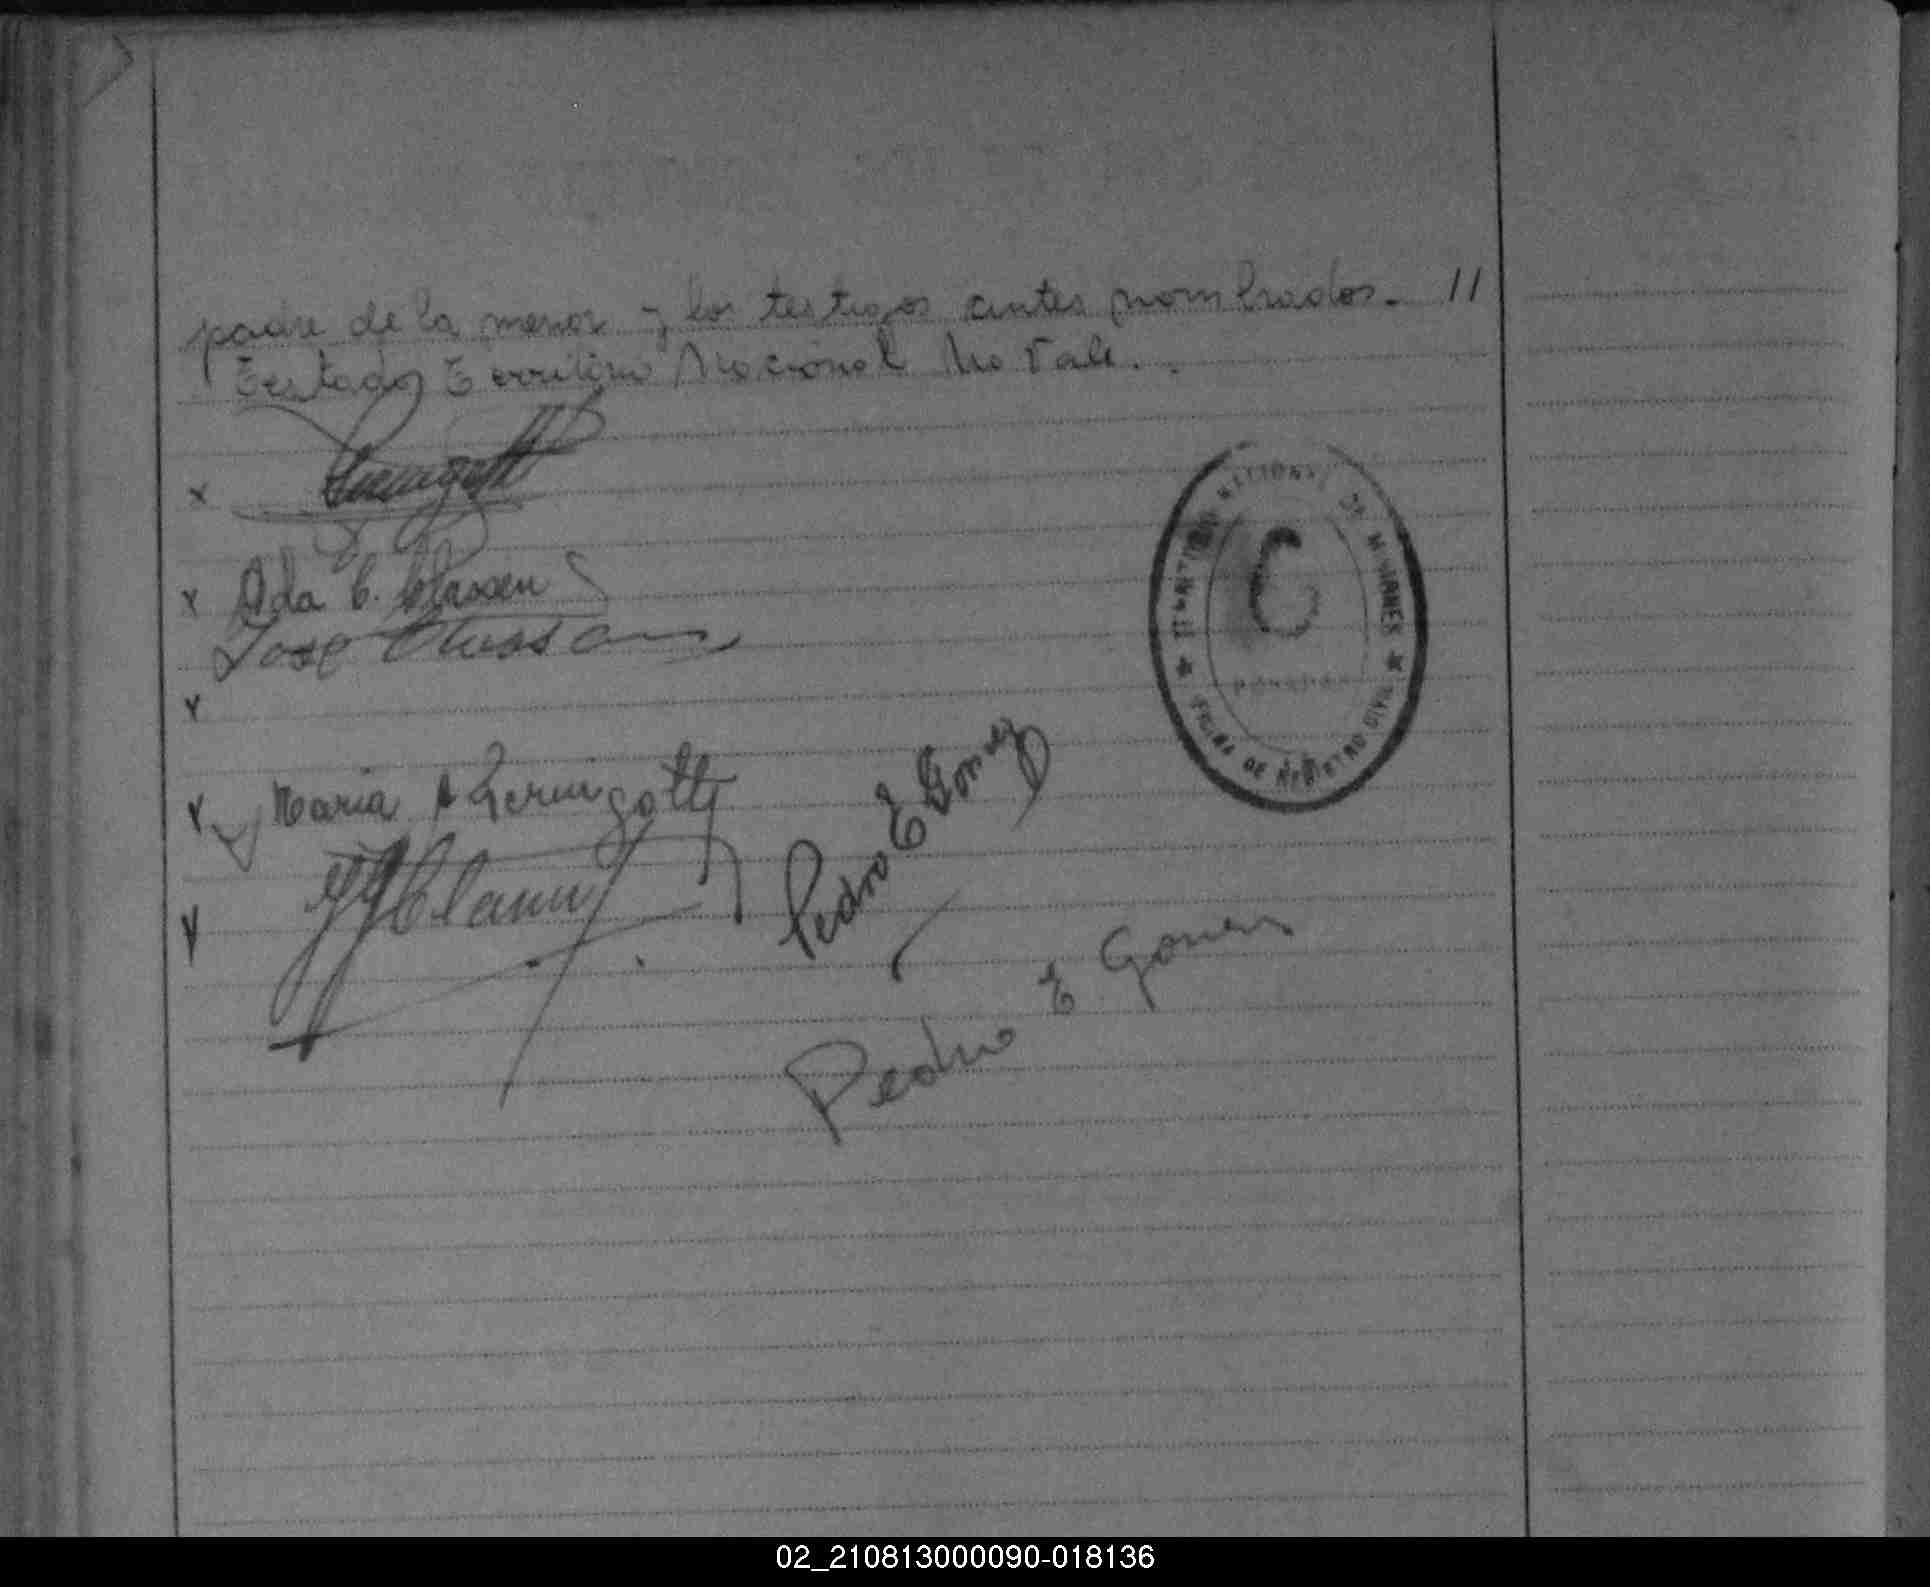 padre de la menor y los testigos antes nombrados. 11
Testado Territorio Nacional No Vale. .
x
x Ada C. Claxen
Jose
x
x Maria A Gerungotti
x
Pedro E Gomez
Pedro E Gomez
NACIONAL DE MISIONES
OFICINA DE REGISTRO CIVIL
POSADAS
02_210813000090-018136